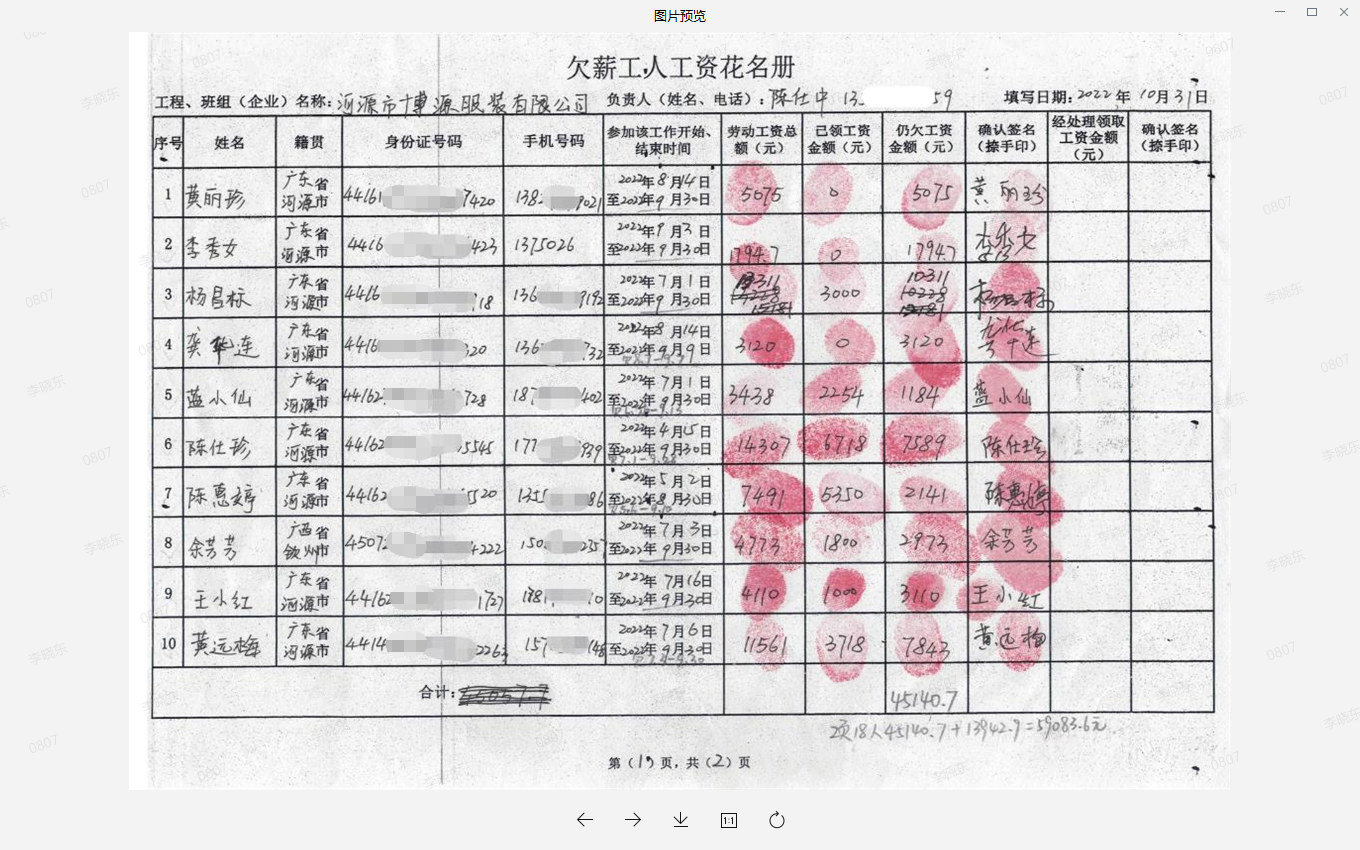 图片预览
欠薪工人工资花名册
工程、班组（企业）名称：河源市博源服装有限公司 负责人（姓名、电话）：陈仕中 13 59 填写日期：2022年10月31日
序号 姓名 籍贯 身份证号码 手机号码 参加该工作开始、结束时间 劳动工资总额（元） 已领工资金额（元） 仍欠工资金额（元） 确认签名（捺手印） 经处理领取工资金额（元） 确认签名（捺手印）
1 黄丽珍 广东省河源市 44161 7420 138 9021 2022年8月14日至2022年9月30日 5075 0 5075 黄丽珍
2 李秀女 广东省河源市 4416 423 1375026 2022年9月3日至2022年9月30日 1794.7 0 1794.7 李秀女
3 杨昌标 广东省河源市 4416 918 136 9192 2022年7月1日至2022年9月30日 3000 10311
4 龚华连 广东省河源市 4416 320 136 732 2022年8月14日至2022年9月9日 3120 0 3120
5 蓝小仙 广东省河源市 44162 728 187 402 2022年7月1日至2022年9月30日 3438 2254 1184 蓝小仙
6 陈仕珍 广东省河源市 44162 5545 177 939 2022年4月15日至2022年9月30日 14307 6718 7589 陈仕珍
7 陈惠婷 广东省河源市 44162 5520 135 86 2022年5月2日至2022年8月30日 7491 5350 2141 陈惠婷
8 余芳芳 广西省钦州市 45072 4222 150 2357 2022年7月3日至2022年9月30日 4773 1800 2973 余芳芳
9 王小红 广东省河源市 44162 1727 181 10 2022年7月16日至2022年9月30日 4110 1000 3110 王小红
10 黄远梅 广东省河源市 4414 2263 157 148 2022年7月6日至2022年9月30日 11561 3718 7843 黄远梅
合计： 45140.7
2页18人45140.7+13942.9=59083.6元
第（1）页，共（2）页
1:1